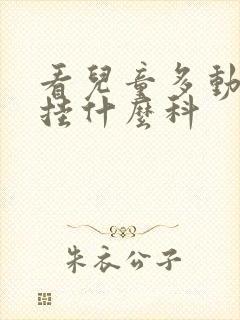 看兒童多動
挂什麼科
朱衣公子